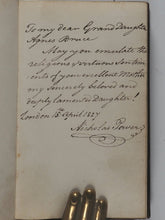 To my dear Grand Daughter
Agnes Bruce
May you emulate the
religious, virtuous Sentim
ents of your excellent Mother
my Sincerely beloved and
deeply lamented Daughter!
London 15 April 1827
Nicholas